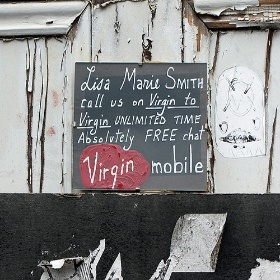 Lisa Marie SMITH
call us on Virgin to
Virgin UNLIMITED TIME
Absolutely FREE chat
Virgin mobile